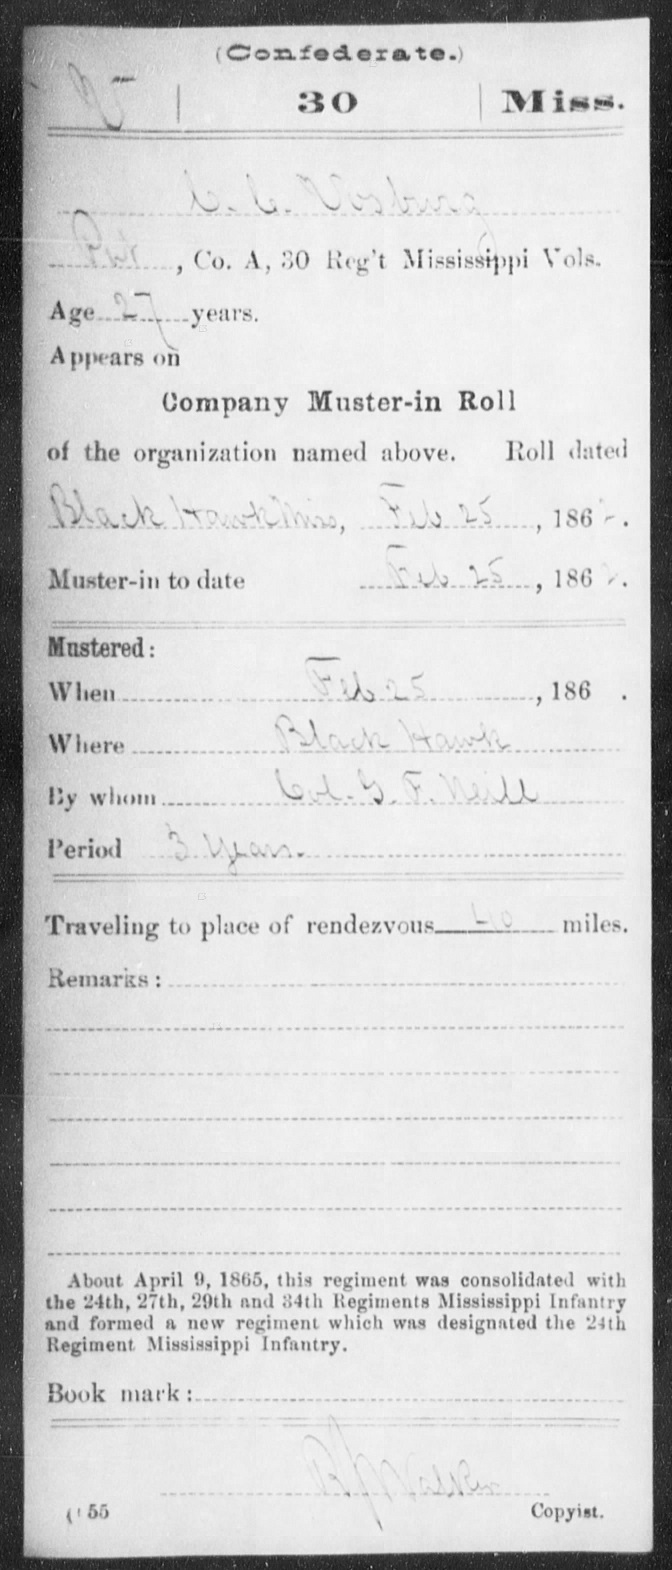 (Confederate.)
V | 30 | Miss.
C. C. Vosburg
Pvt, Co. A, 30 Reg't Mississippi Vols.
Age 27 years.
Appears on
Company Muster-in Roll
of the organization named above. Roll dated
Black Hawk Miss, Feb 25, 1862.
Muster-in to date Feb 25, 1862.
Mustered:
When Feb 25, 186 .
Where Black Hawk
By whom Col. G. F. Neill
Period 3 years.
Traveling to place of rendezvous 40 miles.
Remarks:
About April 9, 1865, this regiment was consolidated with
the 24th, 27th, 29th and 34th Regiments Mississippi Infantry
and formed a new regiment which was designated the 24th
Regiment Mississippi Infantry.
Book mark:
Walker
55 Copyist.